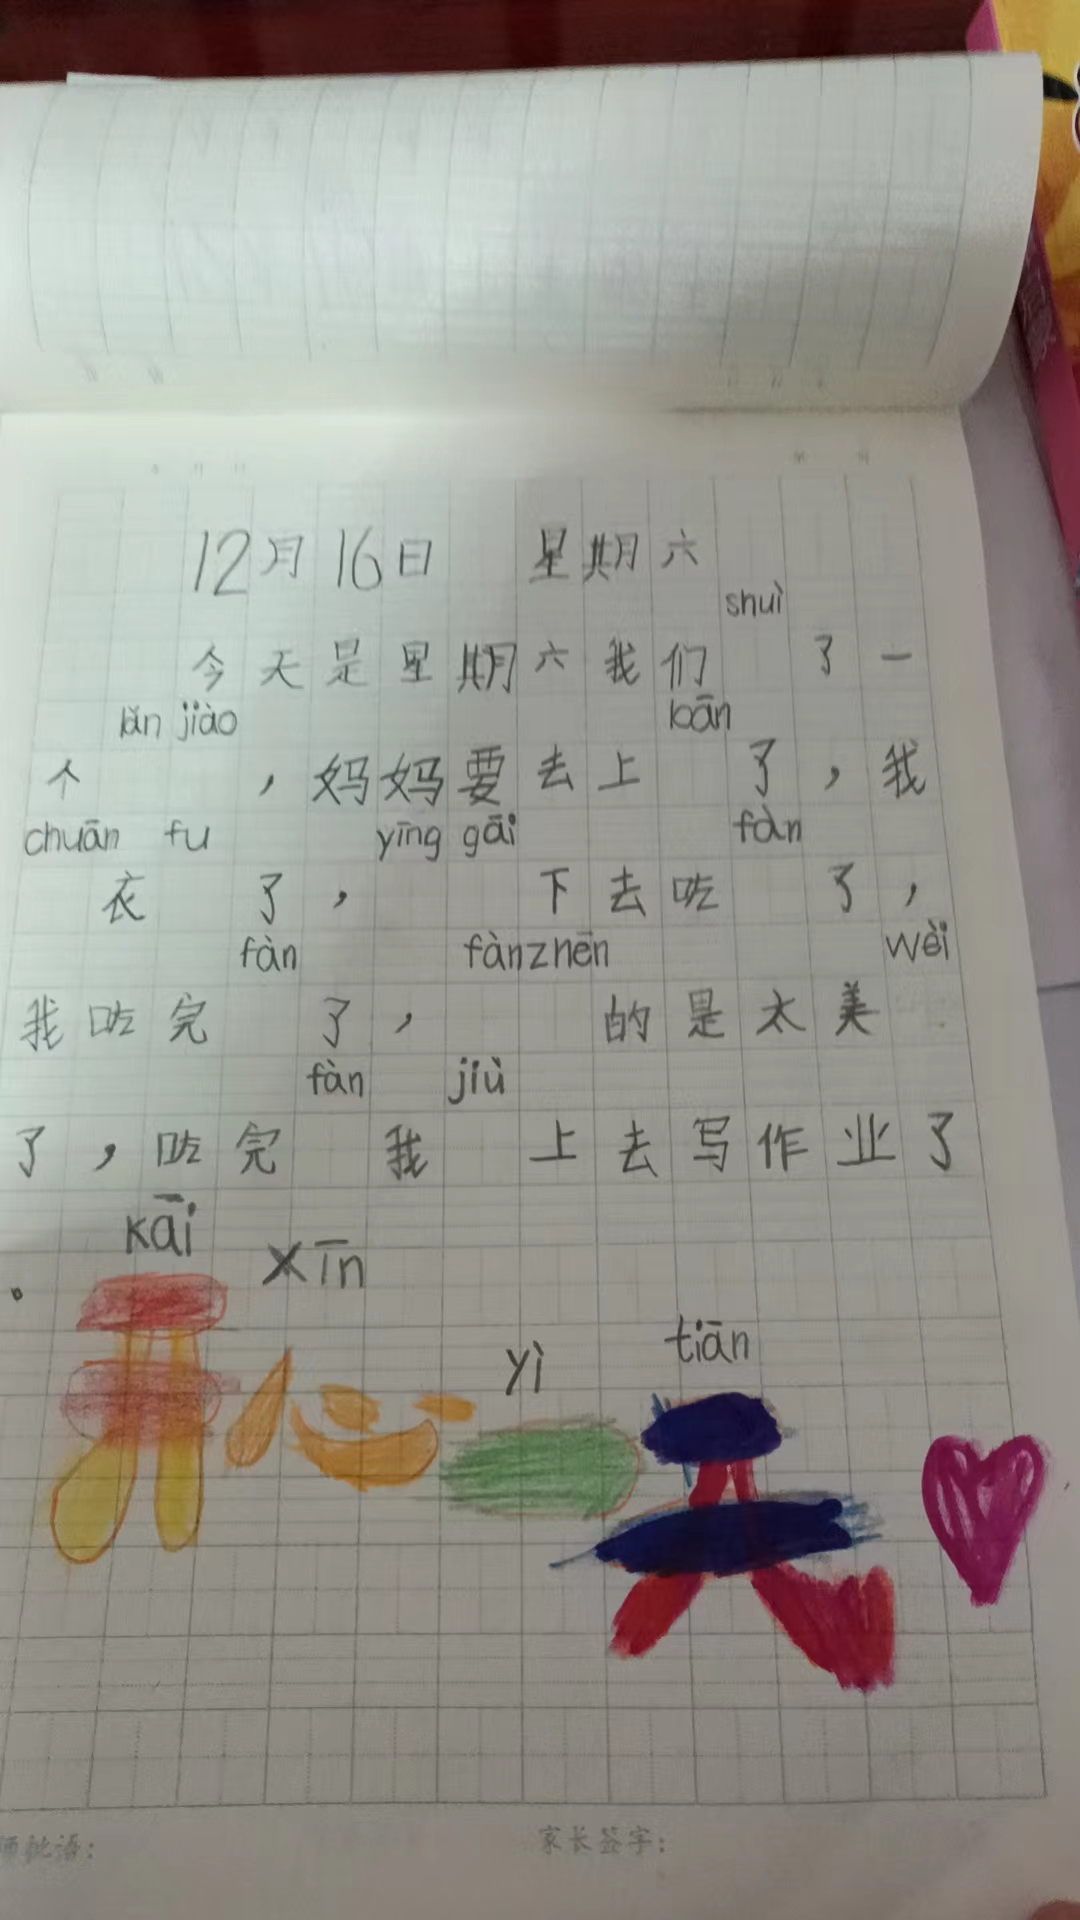 12月16日 星期六
shuì
今天是星期六我们 了一
lǎn jiào bān
个 ，妈妈要去上 了，我
chuān fu yīng gāi fàn
衣 了， 下去吃 了，
fàn fànzhēn wèi
我吃完 了， 的是太美
fàn jiù
了，吃完 我 上去写作业了
。
kāi xīn yì tiān
开心一天
师批语： 家长签字：